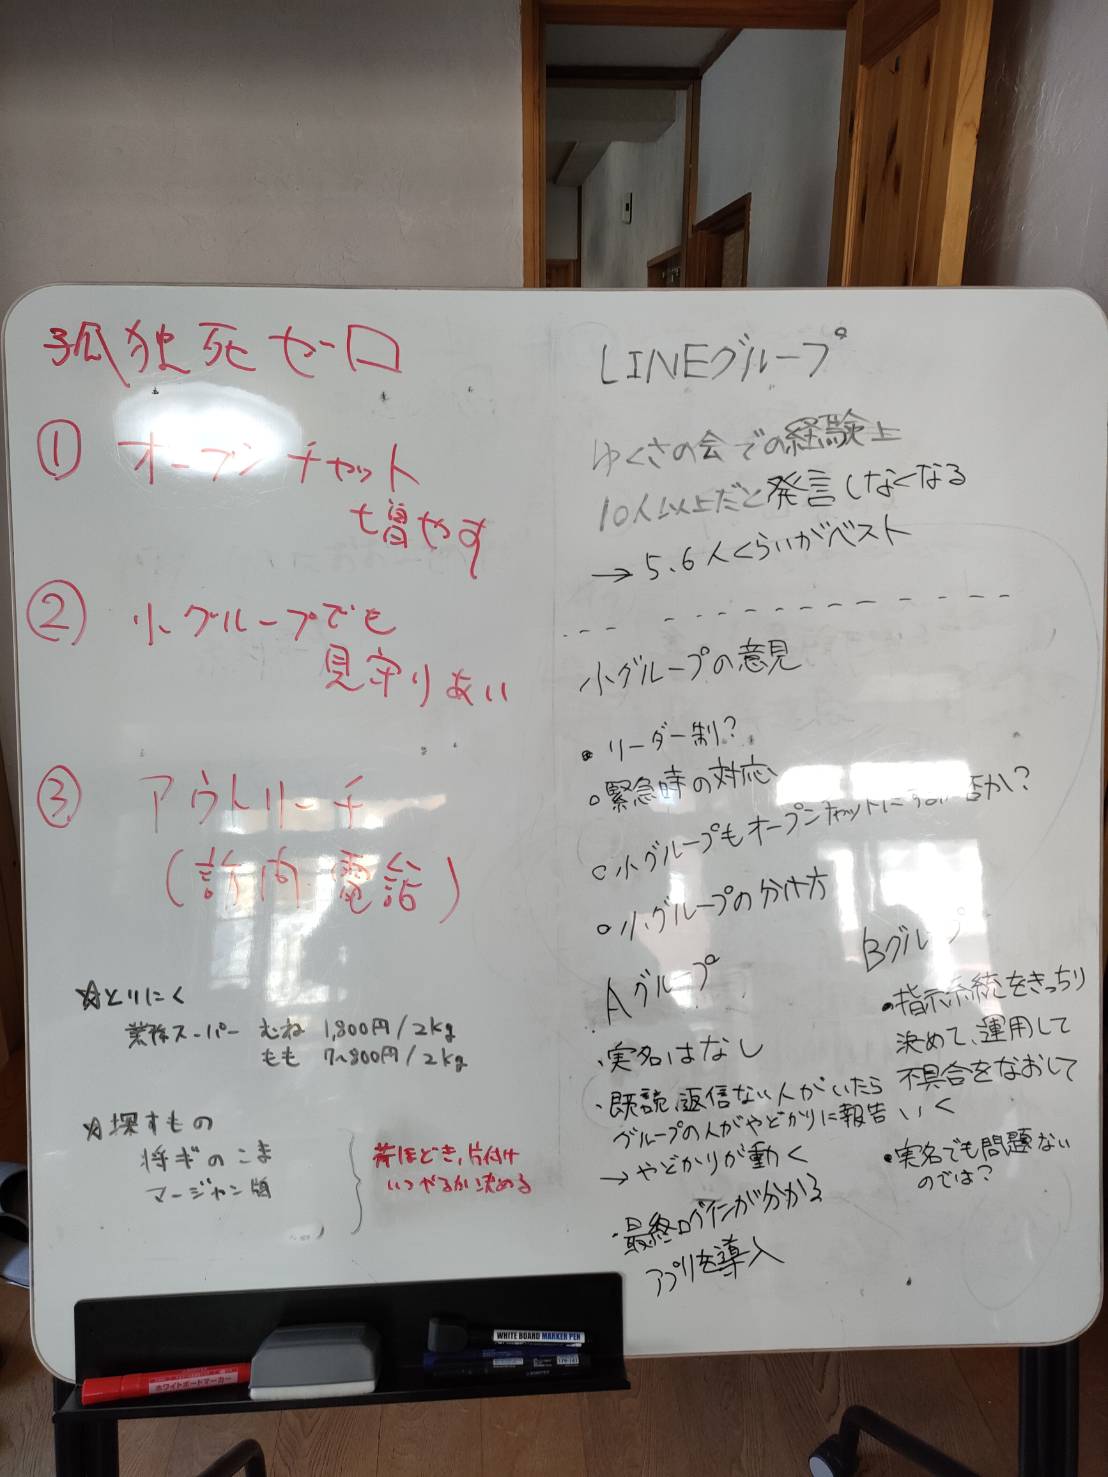 孤独死ゼロ
① オープンチャット
増やす
② 小グループでも
見守りあい
③ アウトリーチ
(訪問、電話)
☆とりにく
業務スーパー むね 1,800円/2kg
もも 7~800円/2kg
☆探すもの
将ギのこま
マージャン版
荷ほどき、片付け
いつやるか決める
LINEグループ
ゆくさの会での経験上
10人以上だと発言しなくなる
→ 5、6人くらいがベスト
小グループの意見
・リーダー制?
○緊急時の対応
○小グループもオープンチャットにするか否か?
○小グループの分け方
Aグループ
・実名はなし
・既読、返信ない人がいたら
グループの人がやどかりに報告
→やどかりが動く
・最終ログインが分かる
アプリを導入
Bグループ
・指示系統をきっちり
決めて、運用して
不具合をなおして
いく
・実名でも問題ない
のでは?
WHITE BOARD MARKER PEN
ホワイトボードマーカー